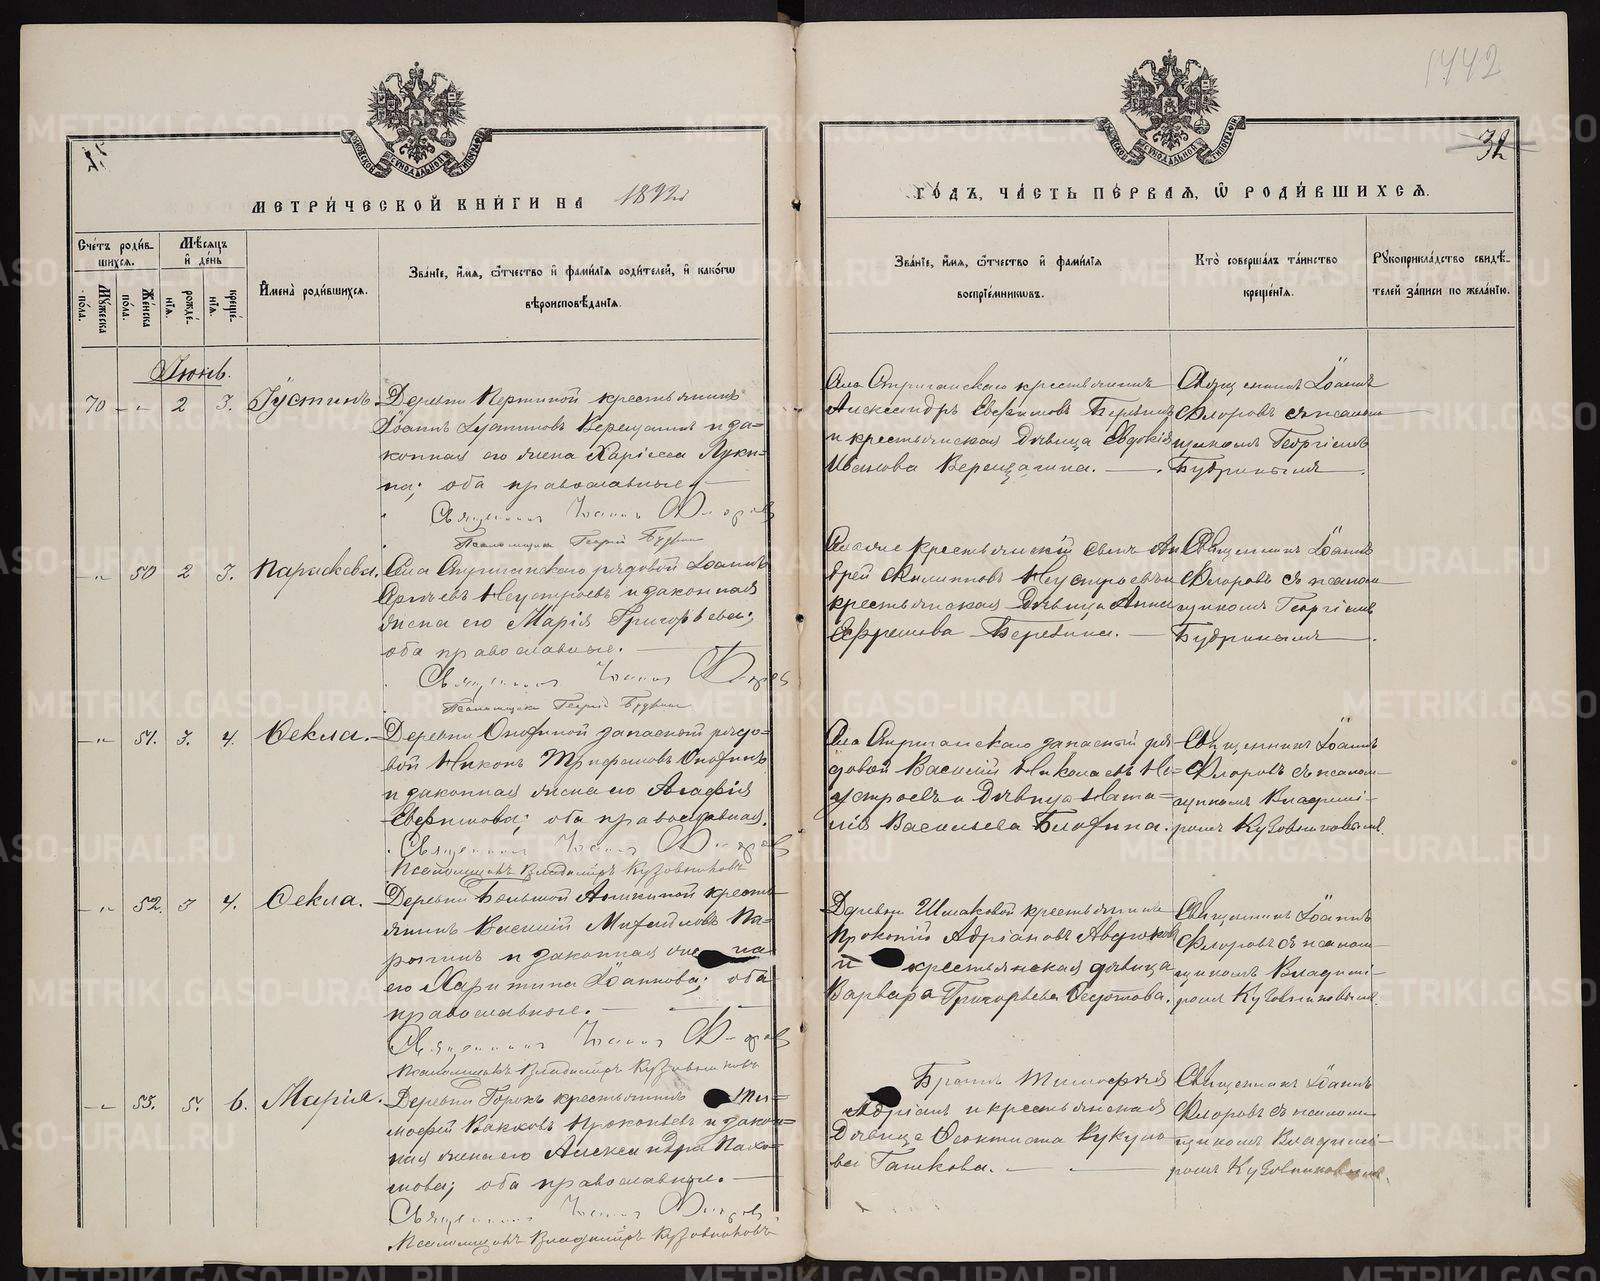 1442
32
МЕТРИ́ЧЕСКОЙ КНИ́ГИ НА 1892
ГО́ДЪ, ЧА́СТЬ ПЕ́РВАЯ, Ѿ РОДИ́ВШИХСЯ.
Сче́тъ роди́в-
шихся.
Мѣ́сяцъ
и де́нь
Му́жеска
по́ла.
Же́нска
по́ла.
рожде́-
нія.
креще́-
нія.
Имена̀ роди́вшихся.
Зва́ніе, и́мя, ѻ́тчество и фами́лія роди́телей, и како́гѡ
вѣроисповѣ́данія.
Зва́ніе, и́мя, ѻ́тчество и фами́лія
воспріе́мникѡвъ.
Кто̀ соверша́лъ та́инство
креще́нія.
Рꙋкоприкла́дство свидѣ́-
телей за́писи по жела́нію.
Іюнь.
70 - „ - 2 3. Іустинъ
крестьянинъ
Іоаннъ Іустиновъ Верещагинъ и за-
конная его жена
оба православные. —
Священникъ Іоаннъ Флоровъ
Псаломщикъ Георгій Будринъ
Села Стриганскаго крестьянинъ
Александръ Евфимовъ Берсенев
и крестьянская дѣвица Евдокія
Иванова Верещагина. —
Священникъ Іоаннъ
Флоровъ съ псалом-
щикомъ Георгіемъ
Будринымъ
- „ - 50 2 3. Параскева.
Села Стриганскаго рядовой Іоаннъ
Неустроевъ и законная
жена его Марія Григорьева;
оба православные. —
Священникъ Іоаннъ Флоровъ
Псаломщикъ Георгій Будринъ
крестьянскій сынъ Ан-
дрей Филипповъ Неустроевъ и
крестьянская дѣвица Анна
Ефремова —
Священникъ Іоаннъ
Флоровъ съ псалом-
щикомъ Георгіемъ
Будринымъ
- „ - 51. 3. 4. Ѳекла.
Деревни запасный рядо-
вой Никонъ Трифоновъ
и законная жена его Агафія
Евфимова; оба православные.
Священникъ Іоаннъ Флоровъ
Псаломщикъ Владиміръ Кузовниковъ
Села Стриганскаго запасный ря-
довой Василій Николаевъ Не-
устроевъ и дѣвица Ната-
лія Васильева
Священникъ Іоаннъ
Флоровъ съ псалом-
щикомъ Владимі-
ромъ Кузовниковымъ.
- „ - 52. 3 4. Ѳекла.
Деревни Большой кресть-
янинъ Василій Михайловъ Па-
и законная жена
его Харитина Іоаннова; оба
православные. —
Священникъ Іоаннъ Флоровъ
Псаломщикъ Владиміръ Кузовниковъ
Деревни крестьянинъ
Прокопій Адріановъ
и крестьянская дѣвица
Варвара Григорьева Ѳедотова.
Священникъ Іоаннъ
Флоровъ съ псалом-
щикомъ Владимі-
ромъ Кузовниковымъ.
- „ - 53. 5. 6. Марія.
Деревни крестьянинъ Ти-
моѳей Прокопьевъ и закон-
ная жена его Александра Пахо-
мова; оба православные. —
Священникъ Іоаннъ Флоровъ
Псаломщикъ Владиміръ Кузовниковъ
Братъ Тимоѳея
Адріанъ и крестьянская
дѣвица Ѳеоктиста Вуколо-
ва —
Священникъ Іоаннъ
Флоровъ съ псалом-
щикомъ Владимі-
ромъ Кузовниковымъ.
METRIKI.GASO-URAL.RU